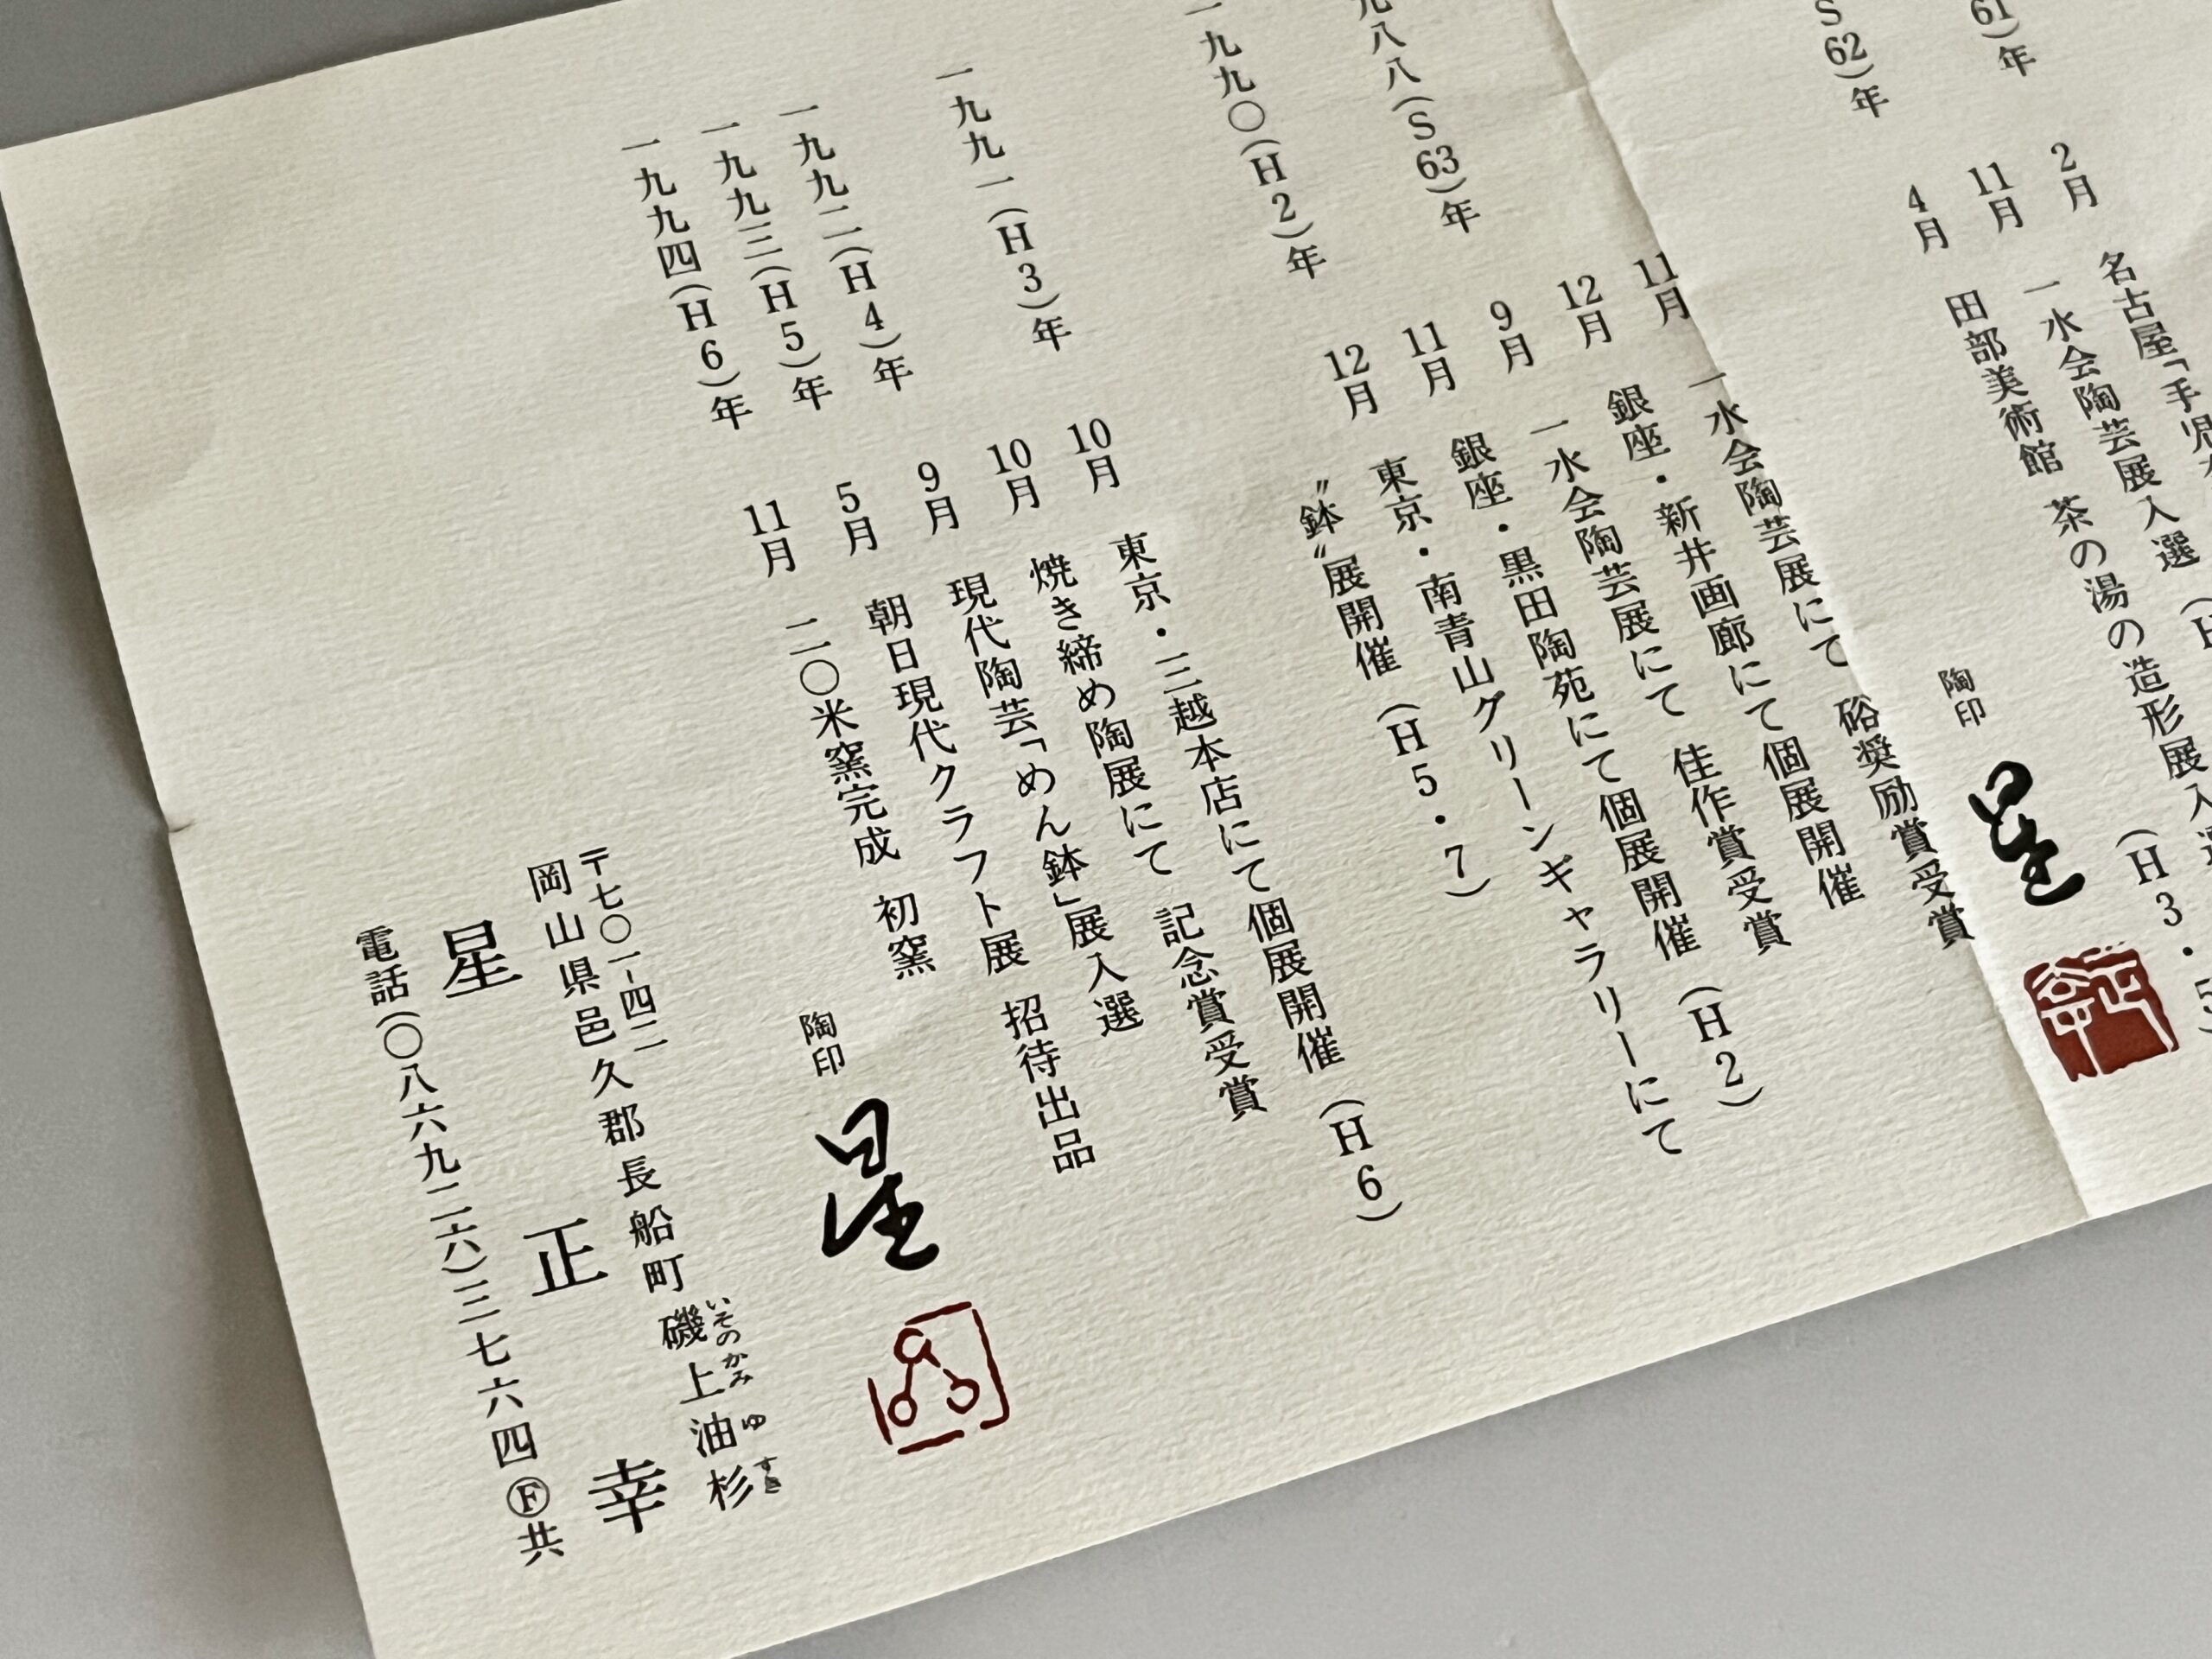 61)年
2月 名古屋「手
11月 一水会陶芸展入選
S62)年
4月 田部美術館 茶の湯の造形展入選 (H3・5)
陶印
11月 一水会陶芸展にて 硲奨励賞受賞
12月 銀座・新井画廊にて個展開催
八八(S63)年
9月 一水会陶芸展にて 佳作賞受賞
11月 銀座・黒田陶苑にて個展開催 (H2)
12月 東京・南青山グリーンギャラリーにて
〝鉢〟展開催 (H5・7)
一九九〇(H2)年
10月 東京・三越本店にて個展開催 (H6)
一九九一(H3)年
10月 焼き締め陶展にて 記念賞受賞
一九九二(H4)年
9月 現代陶芸「めん鉢」展入選
一九九三(H5)年
5月 朝日現代クラフト展 招待出品
一九九四(H6)年
11月 二〇米窯完成 初窯
陶印 星
〒七〇一-四二
岡山県邑久郡長船町磯上油杉
いそのかみゆすぎ
星正幸
電話(〇八六九二六)三七六四Ⓕ共